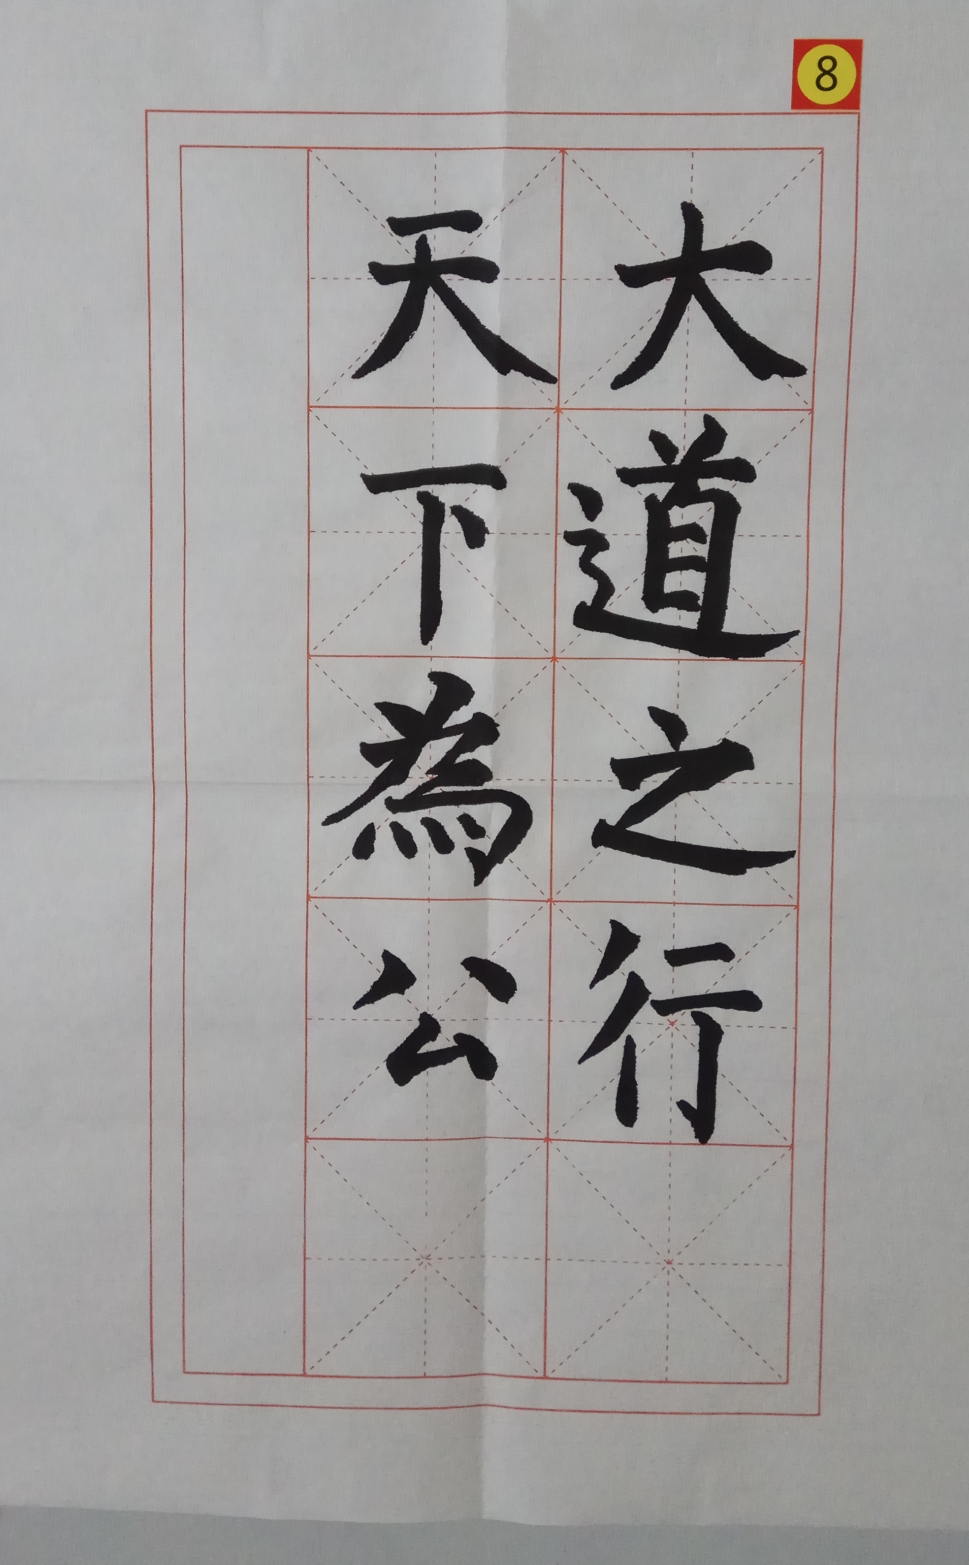 8
大道之行
天下為公